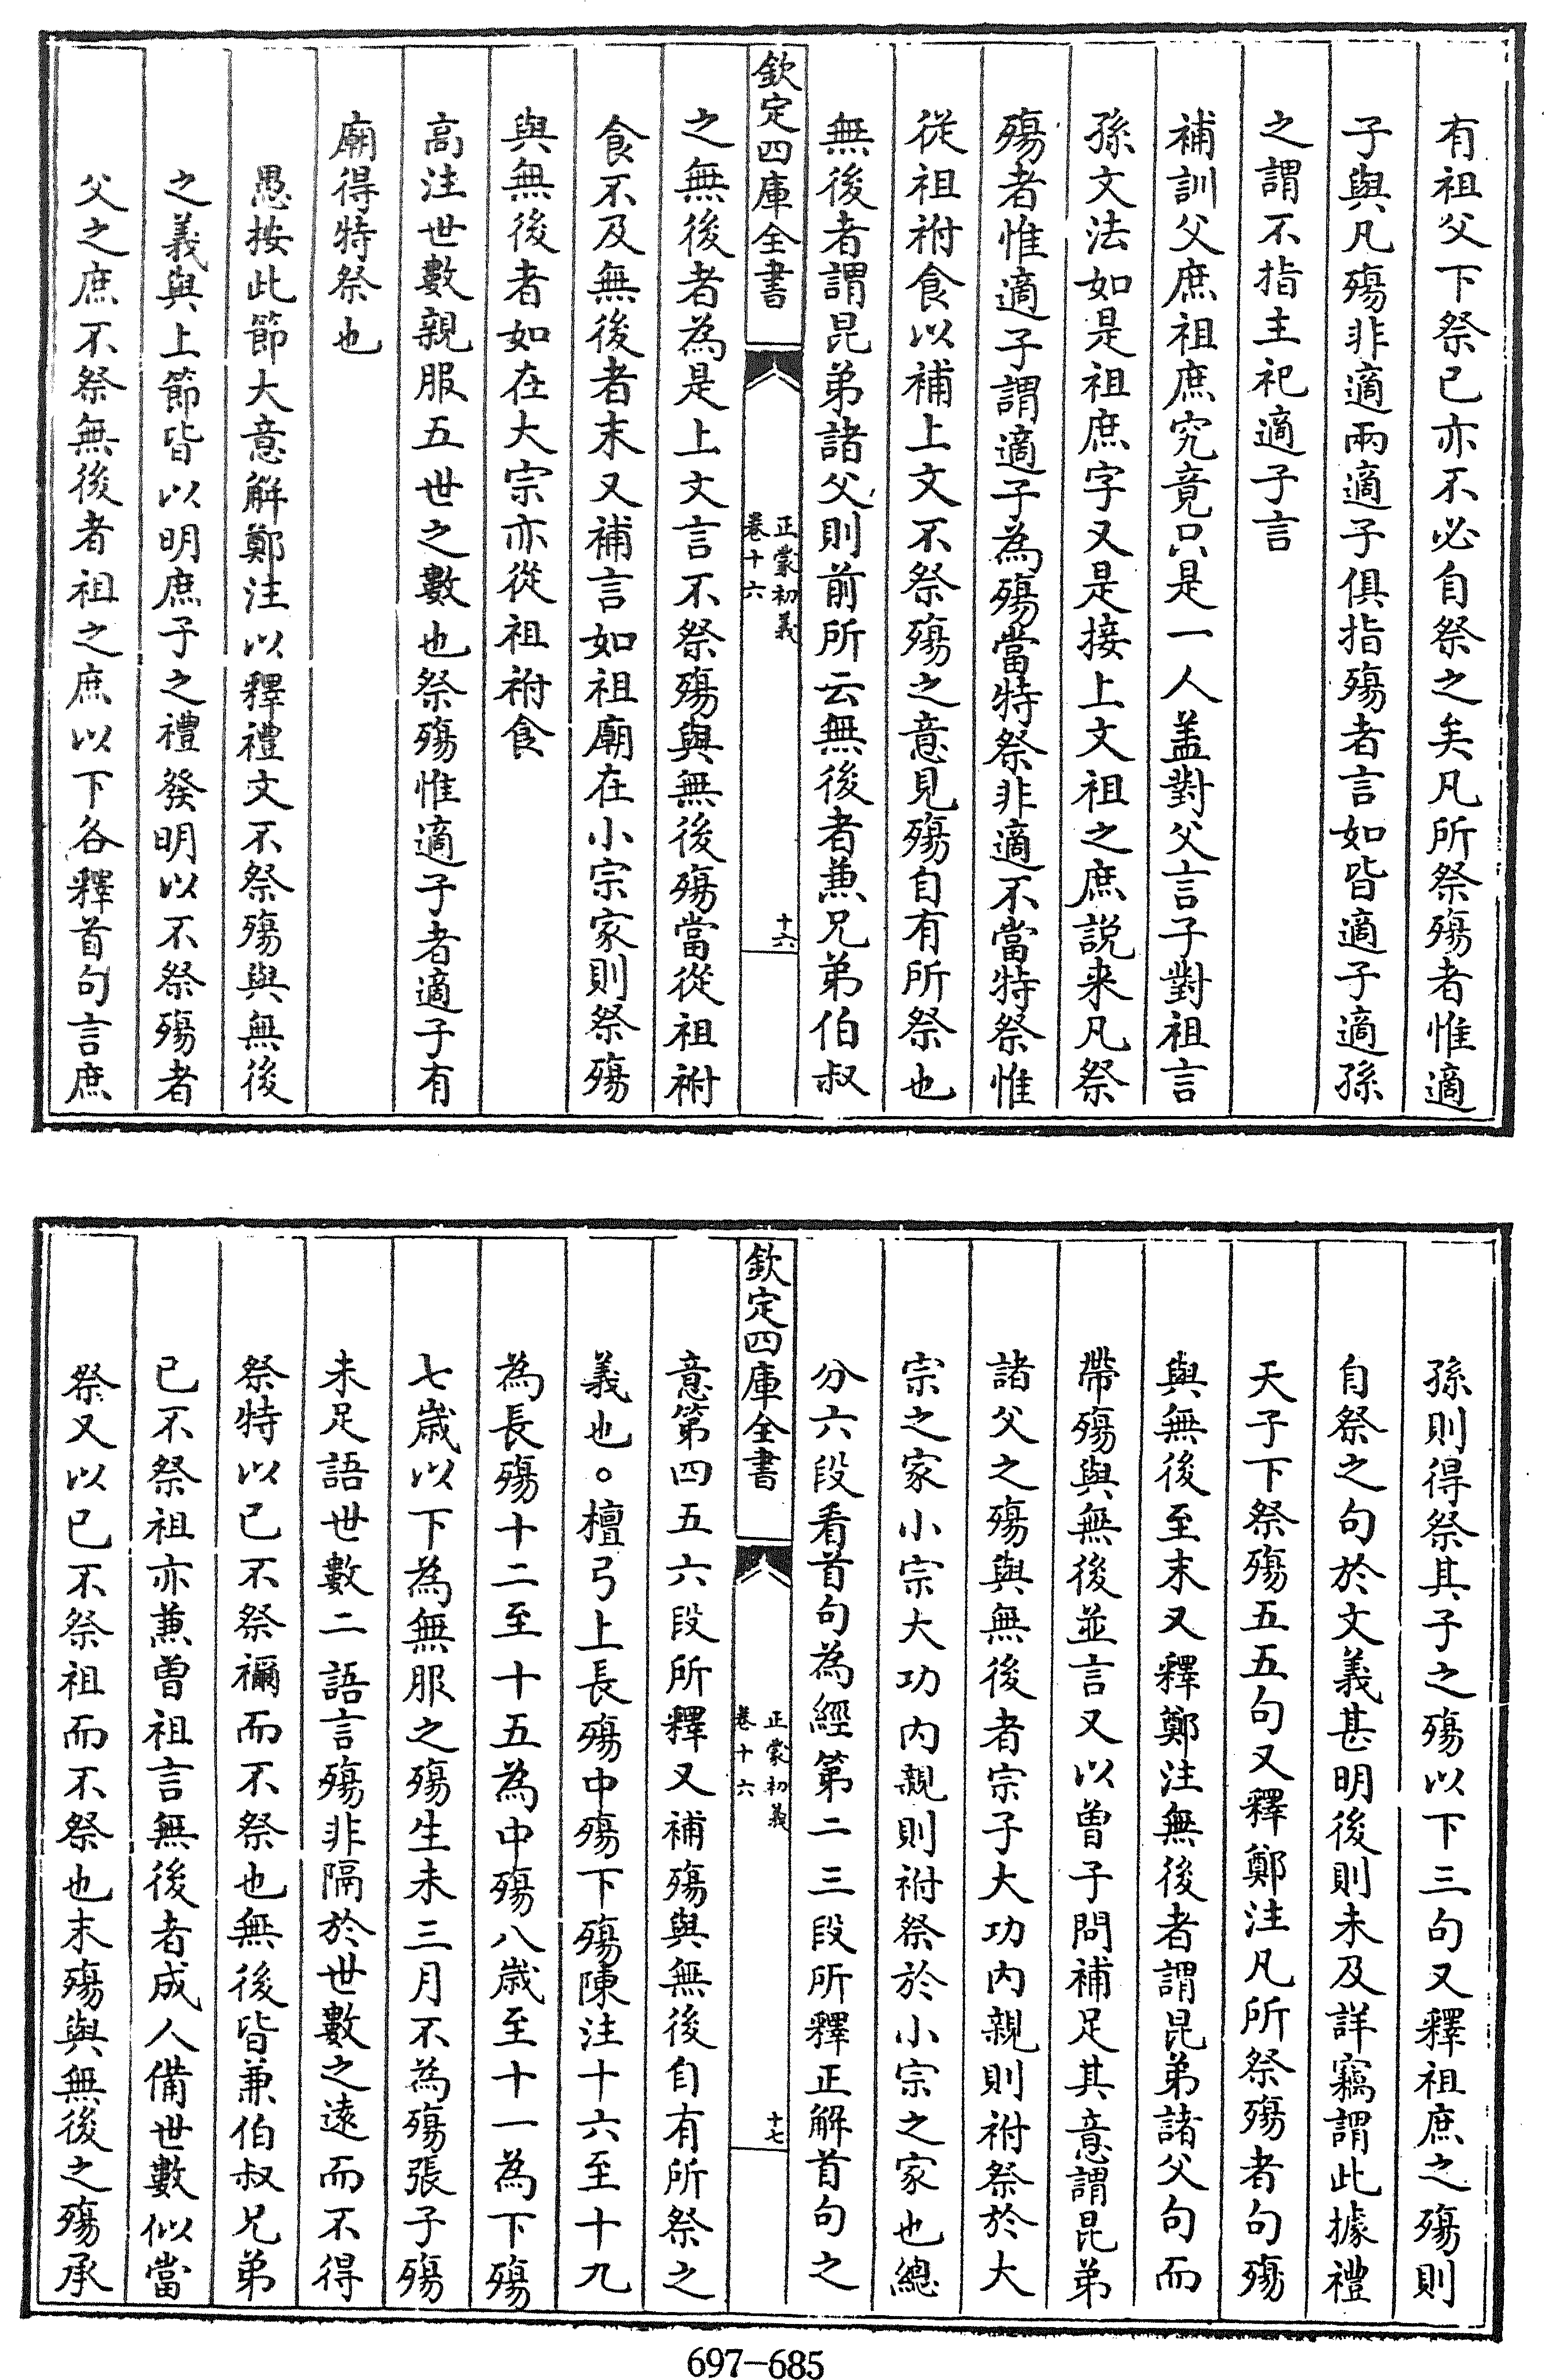 有祖父下祭已亦不必自祭之矣凡所祭殤者惟適
子與凡殤非適兩適子俱指殤者言如皆適子適孫
之謂不指主祀適子言
補訓父庶祖庶究竟只是一人盖對父言子對祖言
孫文法如是祖庶字又是接上文祖之庶説来凡祭
殤者惟適子謂適子為殤當特祭非適不當特祭惟
從祖祔食以補上文不祭殤之意見殤自有所祭也
無後者謂昆弟諸父則前所云無後者兼兄弟伯叔
欽定四庫全書
正蒙初義
卷十六
十六
之無後者為是上文言不祭殤與無後殤當從祖祔
食不及無後者末又補言如祖廟在小宗家則祭殤
與無後者如在大宗亦從祖祔食
高注世數親服五世之數也祭殤惟適子者適子有
廟得特祭也
愚按此節大意解鄭注以釋禮文不祭殤與無後
之義與上節皆以明庶子之禮發明以不祭殤者
父之庶不祭無後者祖之庶以下各釋首句言庶
孫則得祭其子之殤以下三句又釋祖庶之殤則
自祭之句於文義甚明後則未及詳竊謂此據禮
天子下祭殤五五句又釋鄭注凡所祭殤者句殤
與無後至末又釋鄭注無後者謂昆弟諸父句而
帶殤與無後並言又以曾子問補足其意謂昆弟
諸父之殤與無後者宗子大功内親則祔祭於大
宗之家小宗大功内親則祔祭於小宗之家也總
分六段看首句為經第二三段所釋正解首句之
欽定四庫全書
正蒙初義
卷十六
十七
意第四五六段所釋又補殤與無後自有所祭之
義也○檀弓上長殤中殤下殤陳注十六至十九
為長殤十二至十五為中殤八歳至十一為下殤
七歳以下為無服之殤生未三月不為殤張子殤
未足語世數二語言殤非隔於世數之遠而不得
祭特以已不祭禰而不祭也無後皆兼伯叔兄弟
已不祭祖亦兼曽祖言無後者成人備世數似當
祭又以已不祭祖而不祭也末殤與無後之殤承
697-685